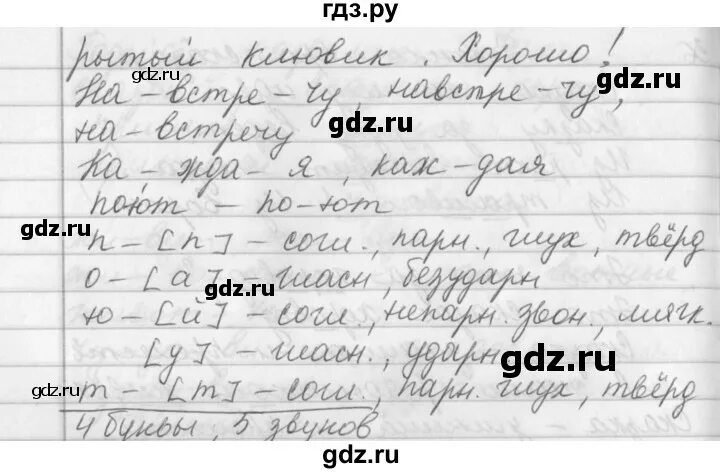 гдз.ру
рытый клювик. Хорошо!
gdz.ru gdz.ru
На-встре-чу, навстре-чу,
на-встречу gdz.ru
Ка-жда-я, каж-дая
gdz.ru gdz.ru
поют - по-ют
п-[п]-согл., парн., глух, твёрд
gdz.ru gdz.ru
о-[а]-гласн, безударн
gdz.ru
ю-[й]-согл., непарн. звон., мягк.
[у]-гласн., ударн gdz.ru
gdz.ru gdz.ru
т-[т]-согл., парн. глух, твёрд
4 буквы, 5 звуков
gdz.ru gdz.ru